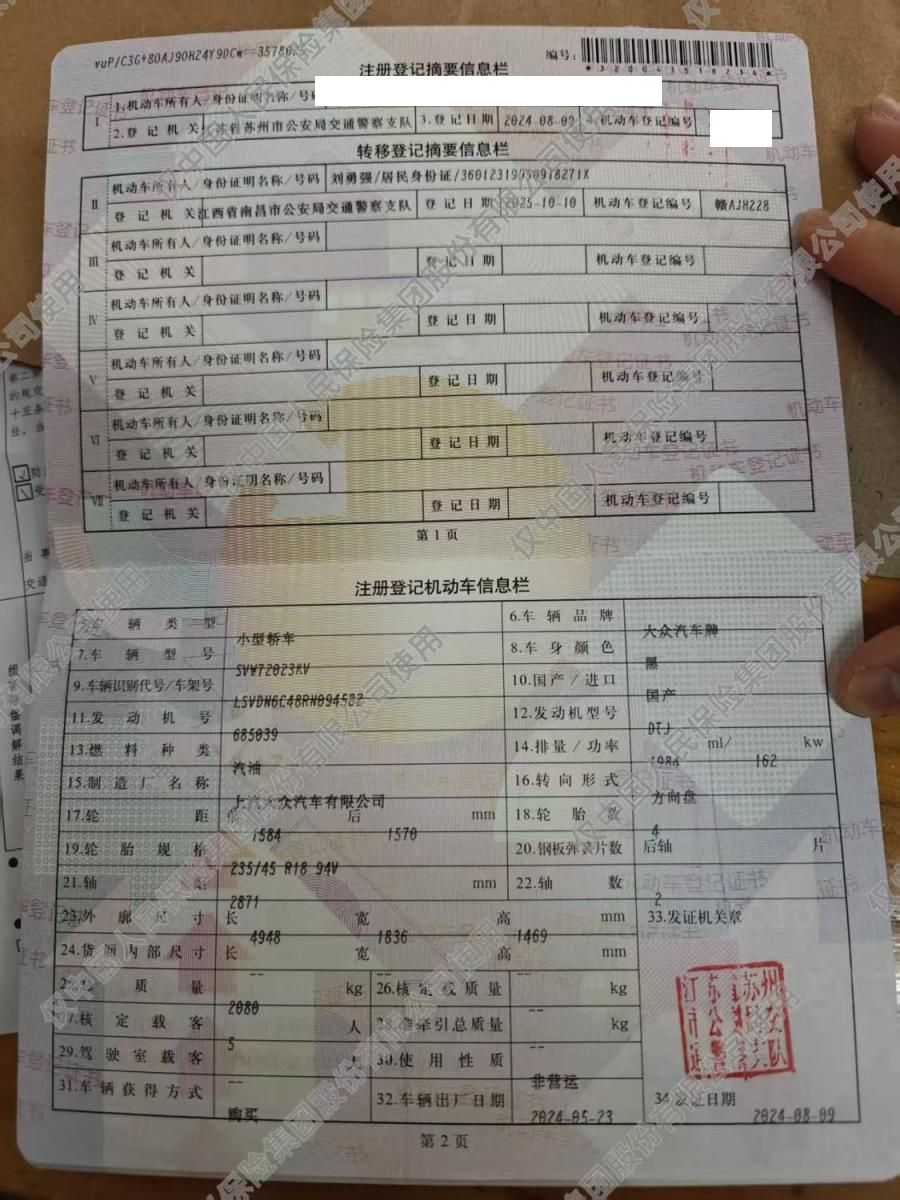 vuP/C3G+80AJ90H24Y9DCw==3578
编号:
*320043518234*
注册登记摘要信息栏
I 1.机动车所有人/身份证明名称/号码
2.登记机关 江苏省苏州市公安局交通警察支队 3.登记日期 2024-08-09 4.机动车登记编号
转移登记摘要信息栏
II 机动车所有人/身份证明名称/号码 刘勇强/居民身份证/
登记机关 江西省南昌市公安局交通警察支队 登记日期 2025-10-10 机动车登记编号 赣AJH228
III 机动车所有人/身份证明名称/号码
登记机关 登记日期 机动车登记编号
IV 机动车所有人/身份证明名称/号码
登记机关 登记日期 机动车登记编号
V 机动车所有人/身份证明名称/号码
登记机关 登记日期 机动车登记编号
VI 机动车所有人/身份证明名称/号码
登记机关 登记日期 机动车登记编号
VII 机动车所有人/身份证明名称/号码
登记机关 登记日期 机动车登记编号
第1页
注册登记机动车信息栏
5.车辆类型 小型轿车 6.车辆品牌 大众汽车牌
7.车辆型号 SVW72023KV 8.车身颜色 黑
9.车辆识别代号/车架号 LSVDN6C48RN094582 10.国产/进口 国产
11.发动机号 685039 12.发动机型号 DTJ
13.燃料种类 汽油 14.排量/功率 1984 ml/ 162 kw
15.制造厂名称 上汽大众汽车有限公司 16.转向形式 方向盘
17.轮距 前 1584 后 1570 mm 18.轮胎数 4
19.轮胎规格 235/45 R18 94V 20.钢板弹簧片数 后轴 片
21.轴距 2871 mm 22.轴数 2
23.外廓尺寸 长 4948 宽 1836 高 1469 mm 33.发证机关章
24.货厢内部尺寸 长 -- 宽 -- 高 -- mm
质量 2080 kg 26.核定载质量 -- kg
27.核定载客 5 人 28.准牵引总质量 -- kg
29.驾驶室载客 -- 人 30.使用性质 非营运
31.车辆获得方式 购买 32.车辆出厂日期 2024-05-23 34.发证日期 2024-08-09
江苏省苏州市公安局交通警察支队
第2页
仅中国人民保险集团股份有限公司使用
机动车登记证书